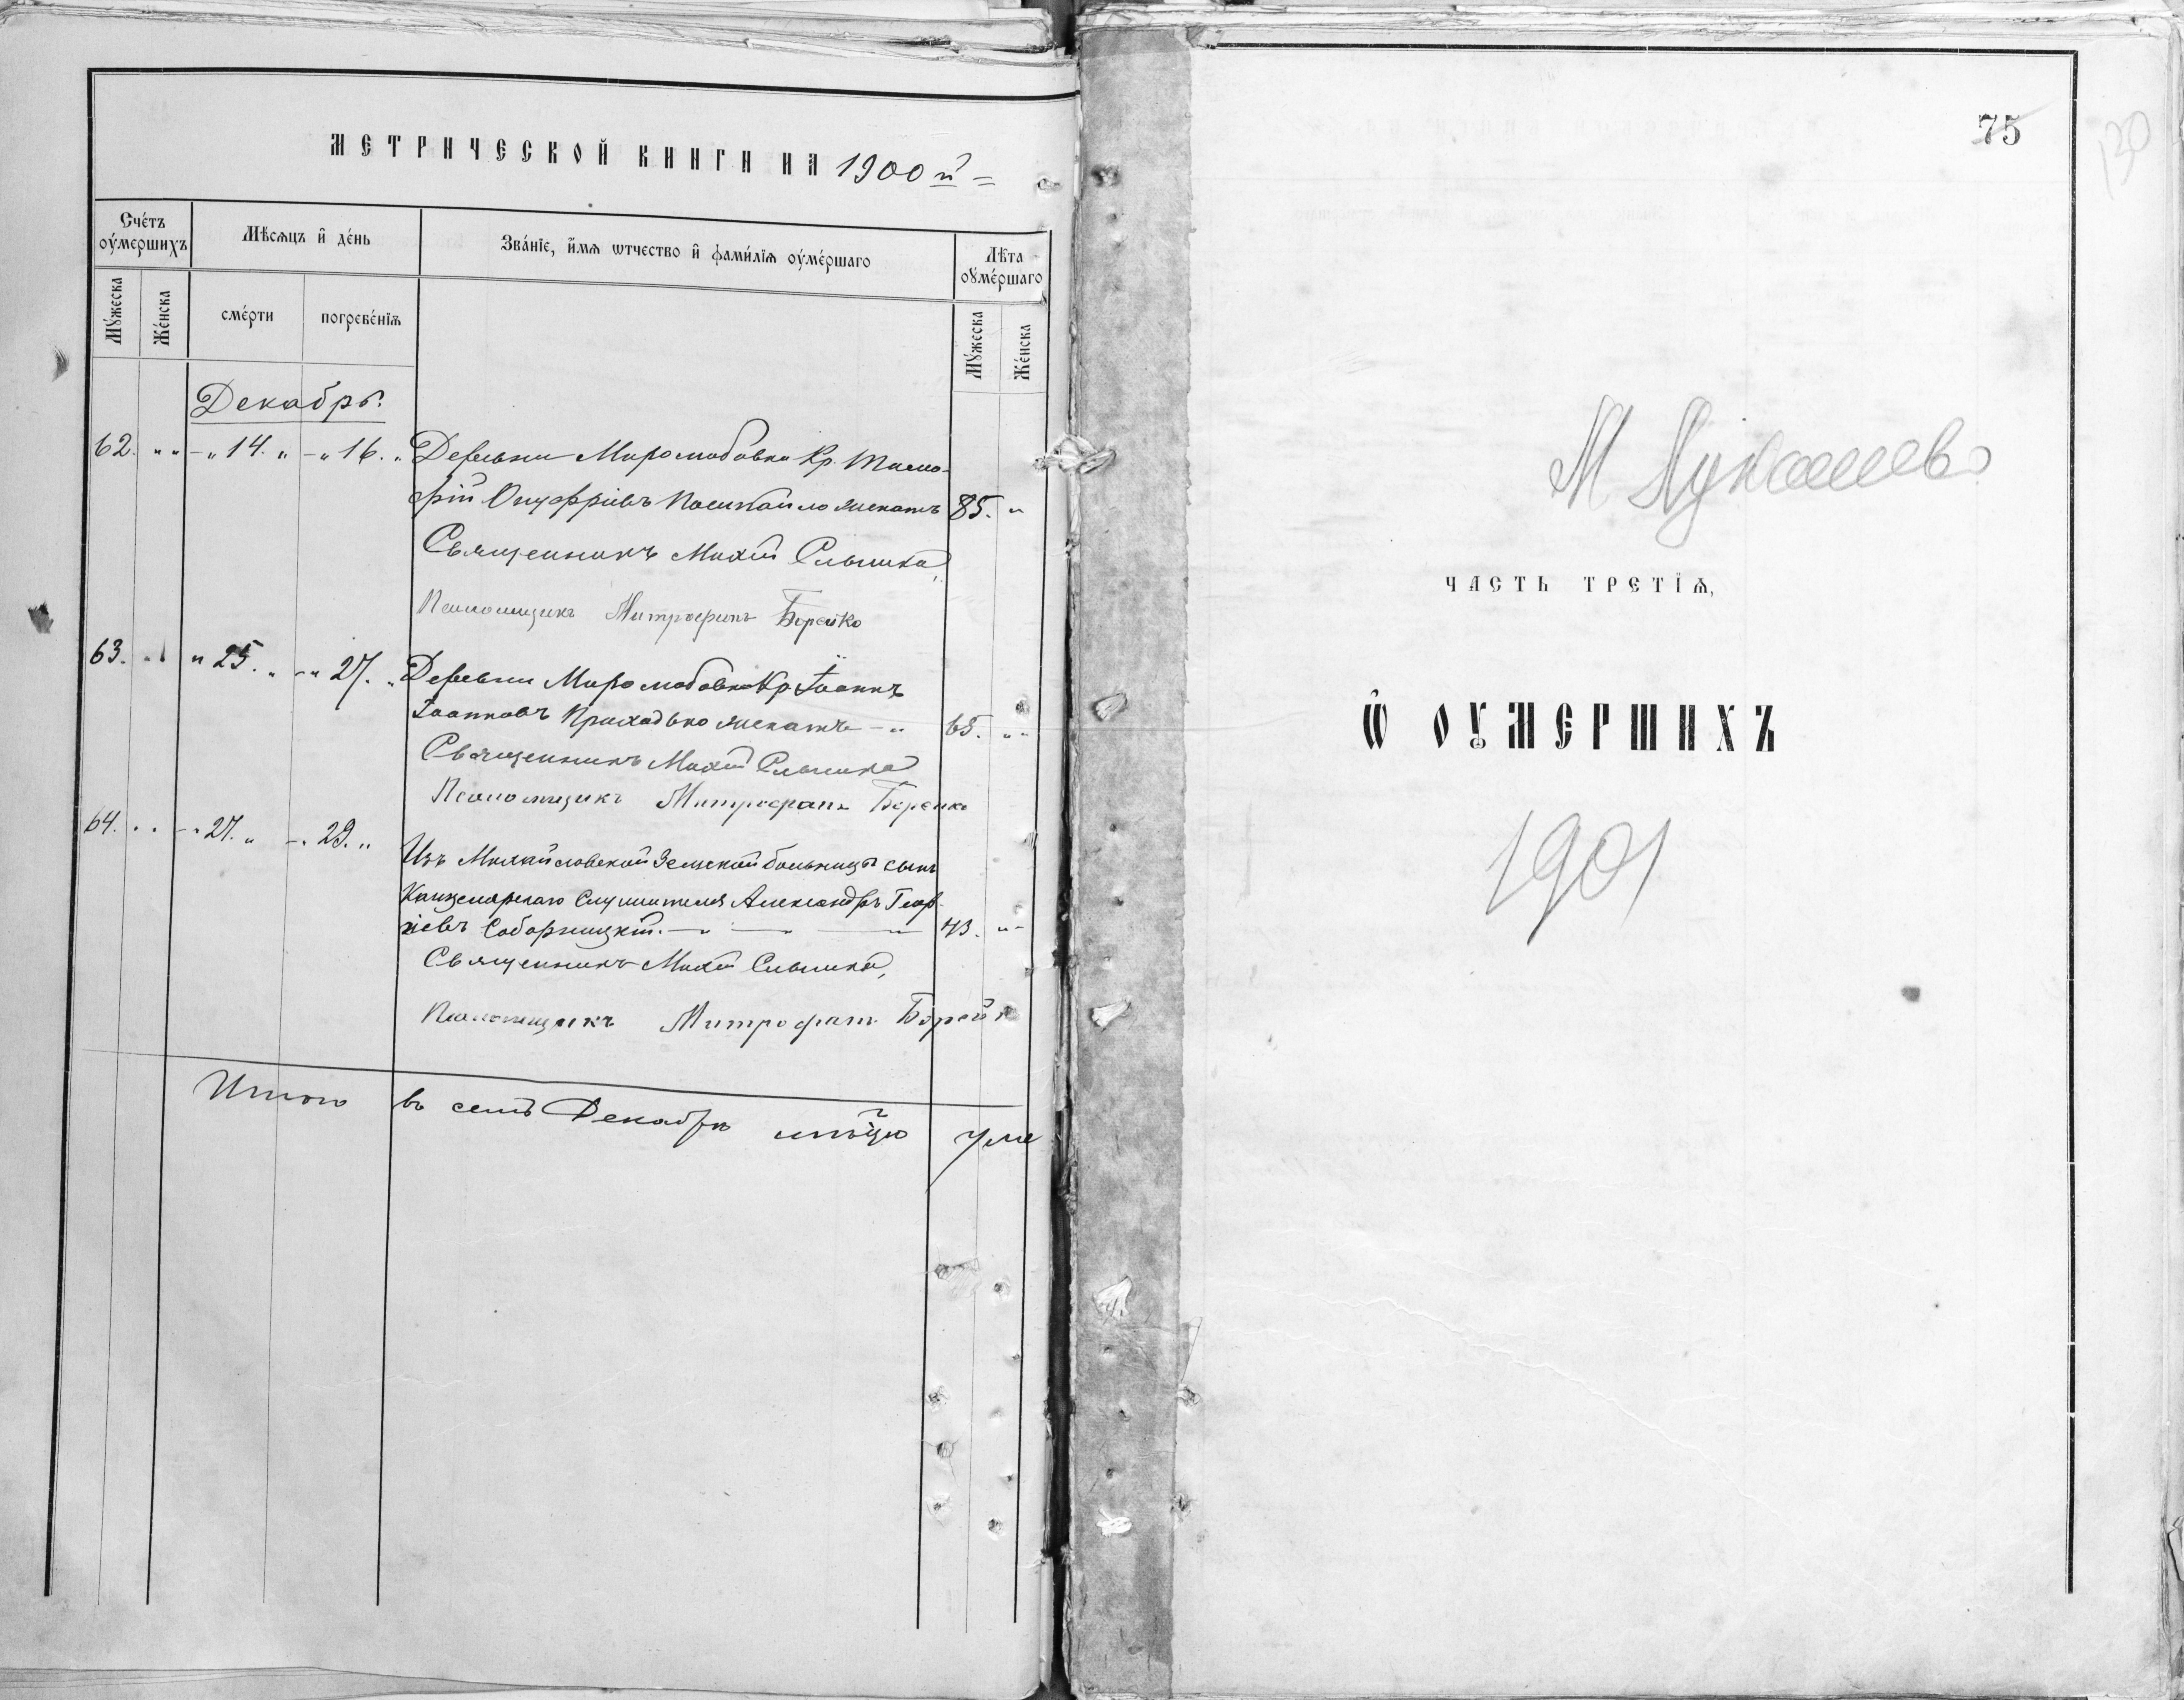 МЕТРИЧЕСКОЙ КНИГИ НА 1900 й
Сче́тъ оу́мершихъ
Мѣсяцъ и҆ де́нь
Зва́нїе, и҆́мѧ ѻтчество и҆ фами́лїѧ оу҆ме́ршагѡ
Лѣ́та оу҆ме́ршагѡ
Мꙋ́жеска
Же́нска
сме́рти
погребе́нїѧ
Мꙋ́жеска
Же́нска
Декабрь.
62. " " - " 14. " - " 16. " Деревни Миролюбовки Кр. Тимо-
фій Онуфріевъ 85. "
Священникъ Михаи Слынко
Псаломщикъ Митрофанъ Борейко
63. " " " 25. " - " 27. " Деревни Миролюбовки Кр. Іоаннъ
Іоанновъ Приходько - " 65. " "
Священникъ Михаи Слынко
Псаломщикъ Митрофанъ Борейко
64. " " - " 27. " - " 29. "
Изъ Михайловской Земской больницы сынъ
Канцелярскаго Служителя Александръ Геор-
гіевъ Соборницкій. 43. " "
Священникъ Михаи Слынко,
Псаломщикъ Митрофанъ Борейк
Итого въ семъ Декабрѣ мѣцѣ уме
75
130
М Лукашевъ
ЧАСТЬ ТРЕТЇѦ,
Ѡ҆ ОУ҆МЕРШИХЪ
1901